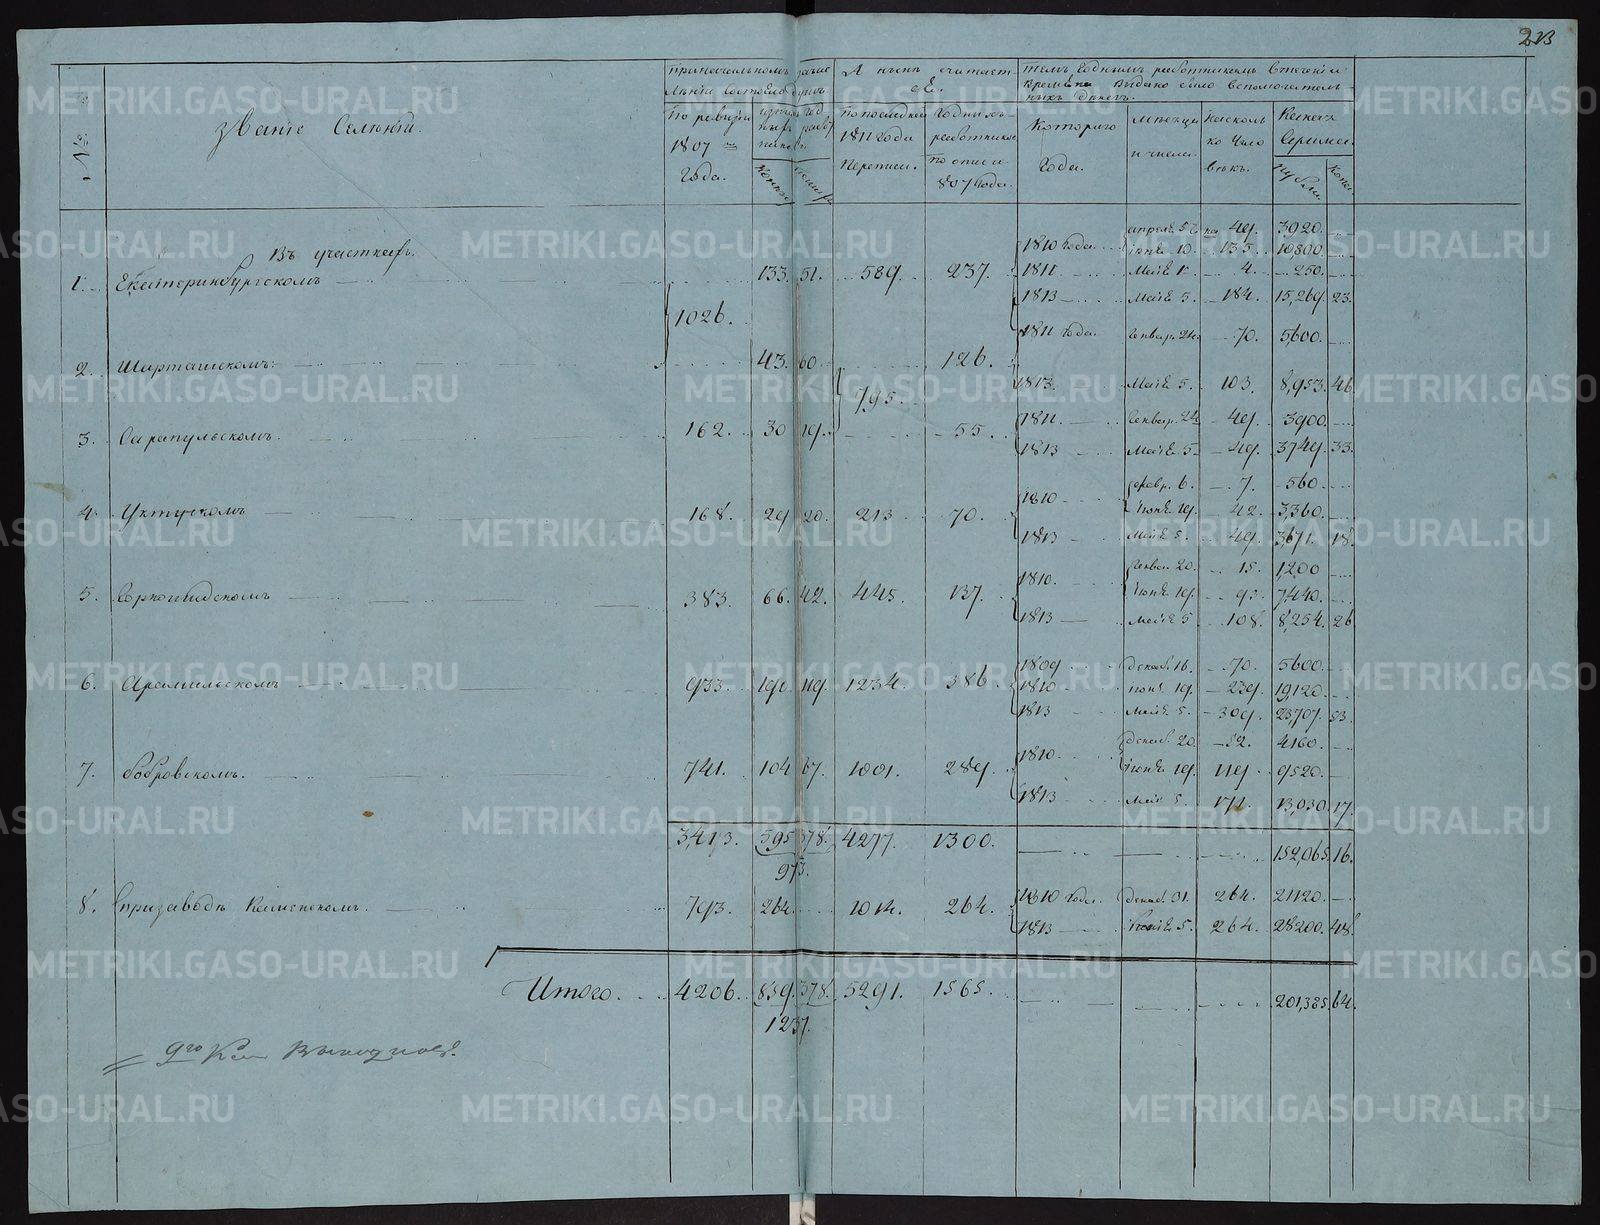 213
№
званіе Селеній.
По ревизіи 1807 года.
А нынѣ считается.
По последней 1811 года переписи.
Годныхъ работниковъ по описи 807 года.
Котораго года.
месяца и числа.
насколько человѣкъ.
рубли. копѣй
Въ участкахъ.
1. Екатеринбургскомъ 133. 51. 589. 237. 1810 года апрель 5 49. 3920.
Іюня 10. 135. 10,800.
1811 Маія 1. 4. 250.
1026.
1813 Маія 5. 184. 15,269. 23.
1811 года Генвар. 24. 70. 5,600.
2. Шарташскомъ. 43. 60. 126.
1813. Маія 5. 103. 8,953. 46
795.
3. Сарапульскомъ. 162. 30 19. 55. 1811. Генвар. 24 49. 3900.
1813 Маія 5. 49. 3749. 33.
4. Уктускомъ 168. 29 20. 213 70. 1810 Февр. 6. 7. 560.
Іюня 19. 42. 3,360.
1813 Маія 5. 49. 3,671. 18.
5. Горнощидскомъ 383. 66. 42. 445. 137. 1810. Генвар. 20. 15. 1,200
Іюня 19. 93. 7,440.
1813 Маія 5 108. 8,254. 26
6. Арамильскомъ 933. 190. 119. 1234. 386. 1809 Декаб. 16. 70. 5600.
1810 Іюня 19. 239. 19,120.
1813 Маія 5. 309. 23,707. 53.
7. Бобровскомъ. 741. 104 67. 1001. 289. 1810. Декаб. 20. 52. 4160.
Іюня 19. 119. 9520.
1813 Маія 5. 171. 13,030. 17.
3,413. 595 378. 4277. 1300. 152,065. 16.
973.
8. при заводѣ Каменскомъ. 793. 264. 1014. 264. 1810 года. Декаб. 31. 264. 21120.
1813 Маія 5. 264. 28200. 48.
Итого. 4206. 859. 378. 5291. 1565. 201,385. 64.
1237.
METRIKI.GASO-URAL.RU